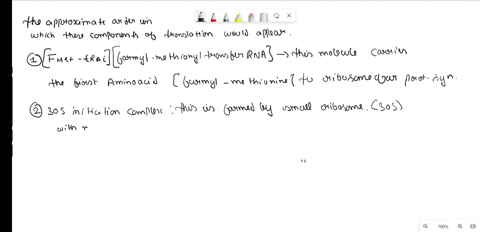 the approximate order in
which these components of translation would appear.
① [FMet - tRAi] [formyl-methionyl transfer RNA] → this molecule carries
the first Aminoacid [formyl-methionine] to ribosome for prot. syn.
② 30S initiation complex : this is formed by small ribosome. (30S)
with
100%